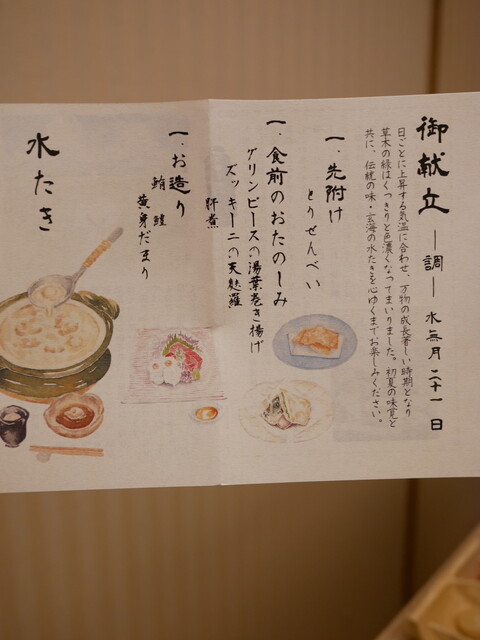 御献立 ―調― 水無月二十一日
日ごとに上昇する気温に合わせ、万物の成長著しい時期となり
草木の緑はくっきりと色濃くなってまいりました。初夏の味覚と
共に、伝統の味・玄海の水たきを心ゆくまでお楽しみください。
一、先附け
とりせんべい
一、食前のおたのしみ
グリンピースの湯葉巻き揚げ
ズッキーニの天麩羅
肝煮
一、お造り
鮪 鱧
黄身だまり
水たき